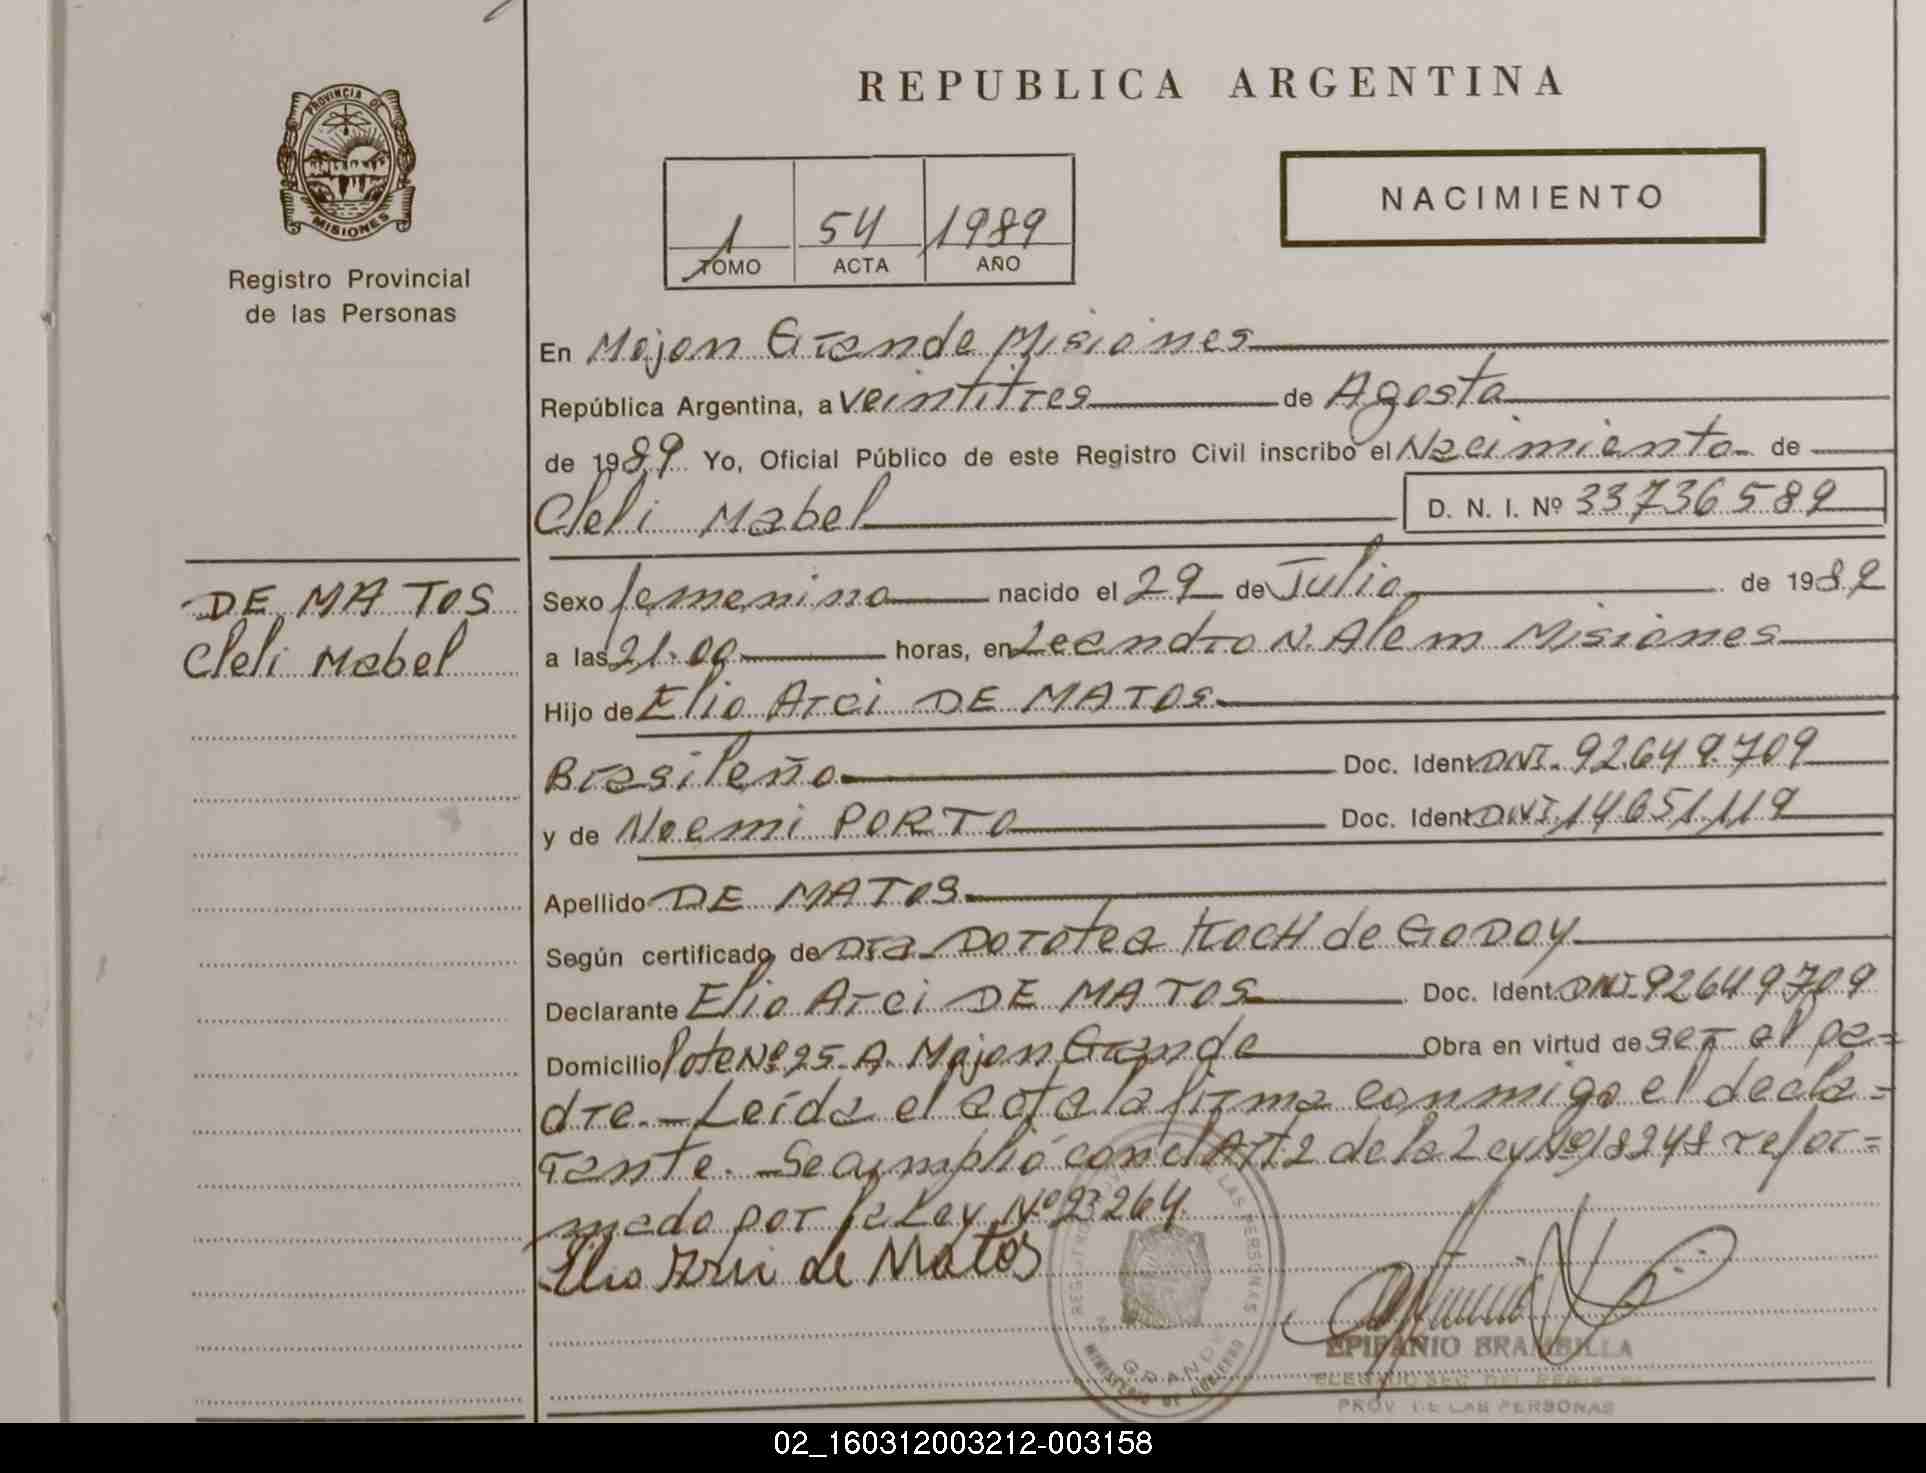 PROVINCIA DE
MISIONES
Registro Provincial
de las Personas
REPUBLICA ARGENTINA
1 54 1989
TOMO ACTA AÑO
NACIMIENTO
En Mojon Grande Misiones
República Argentina, a veintitres de Agosto
de 1989 Yo, Oficial Público de este Registro Civil inscribo el Nacimiento de
Cleli Mabel D. N. I. Nº 33736589
DE MATOS
Cleli Mabel
Sexo femenino nacido el 29 de Julio de 1989
a las 21.00 horas, en Leandro N. Alem Misiones
Hijo de Elio Arci DE MATOS
Brasileño Doc. Ident. DNI. 92.649.709
y de Noemi PORTO Doc. Ident. DNI. 14.651.119
Apellido DE MATOS
Según certificado de Dra Dorotea KOCH de GODOY
Declarante Elio Arci DE MATOS Doc. Ident. DNI. 92649709
Domicilio lote Nº 25 A. Mojon Grande Obra en virtud de ser el pa=
dre. Leída el acta la firma conmigo el decla=
rante. Se amplió con el Art 2 de la Ley Nº 18248 refor=
mado por la Ley Nº 23264.
Elio Arci de Matos
MINISTERIO DE GOBIERNO
GRANDE
EPIFANIO BRAMBILLA
PROV. DE LAS PERSONAS
02_160312003212-003158